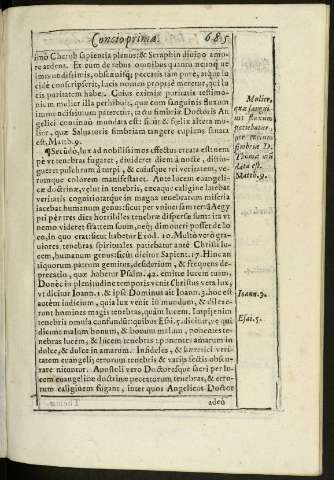 Concio prima. 685
imò Cherub sapientia plenus; & Seraphin diuino amo-
re ardens. Et cum de rebus omnibus
immundissimis, obscœnisq; peccatis tam pure, atque lu
cide conscripserit, lucis nomen propriè meretur, qui lu
cis puritatem habet. Cuius eximiæ puritatis testimo-
nium mulier illa perhibuit, quæ cum sanguinis fluxum
immundissimum pateretur, tactu fimbriæ Doctoris An
gelici continuò mundata est sicut & fœlix altera mu-
lier, quæ Saluatoris fimbriam tangere cupiens sanata
est, Matth. 9.
¶ Secũdò, lux ad nobilissimos effectus creata est: nem
pè vt tenebras fugaret, diuideret diem à nocte, distin-
gueret pulchrum à turpi, & cuiusque rei veritatem, ve-
rumque colorem manifestaret. Ante lucem euangeli-
cæ doctrinæ, velut in tenebris, cæcaque caligine latebat
veritatis cognitio: atque in magna tenebrarum miseria
iacebat humanum genus: sicut per vniuersam terrã Aegy
pti per tres dies horribiles tenebræ dispersæ sunt: ita vt
nemo videret fratrem suum, neq; dimoueri posset de lo
co, in quo erat vt habetur Exod. 10. Multò verò gra-
uiores tenebras spirituales patiebatur antè Christi lu-
cem, humanum genus: sicut dicitur Sapient. 17. Hinc an
tiquorum patrum gemitus, desiderium, & frequens de-
precatio, quæ habetur Psalm. 42. emitte lucem tuam,
Donec in plenitudine temporis venit Christus vera lux,
vt dicitur Ioann. 1. & ipse Dominus ait Ioann. 3. hoc est
autem iudicium, quia lux venit in mundum, & dilexe-
runt homines magis tenebras, quàm lucem. Impij enim
tenebris omnia confundũt: quibus Esai. 5. dicitur, væ qui
dicitis malum bonum, & bonum malum, ponentes te-
nebras lucem, & lucem tenebras: ponentes amarum in
dulce, & dulce in amarum. Infideles, & hæretici veri-
tatem euangelij erronum tenebris & varijs sectis obscu-
rare nituntur. Apostoli vero Doctoresque sacri per lu-
cem euangelicæ doctrinæ peccatorum tenebras, & erro-
rum caliginem fugant, inter quos Angelicus Doctor
adeò
Mulier,
quæ sangui
nis fluxum
patiebatur,
per
fimbriæ D.
Thomæ
Matth. 9.
Ioann. 3.
Esai. 5.